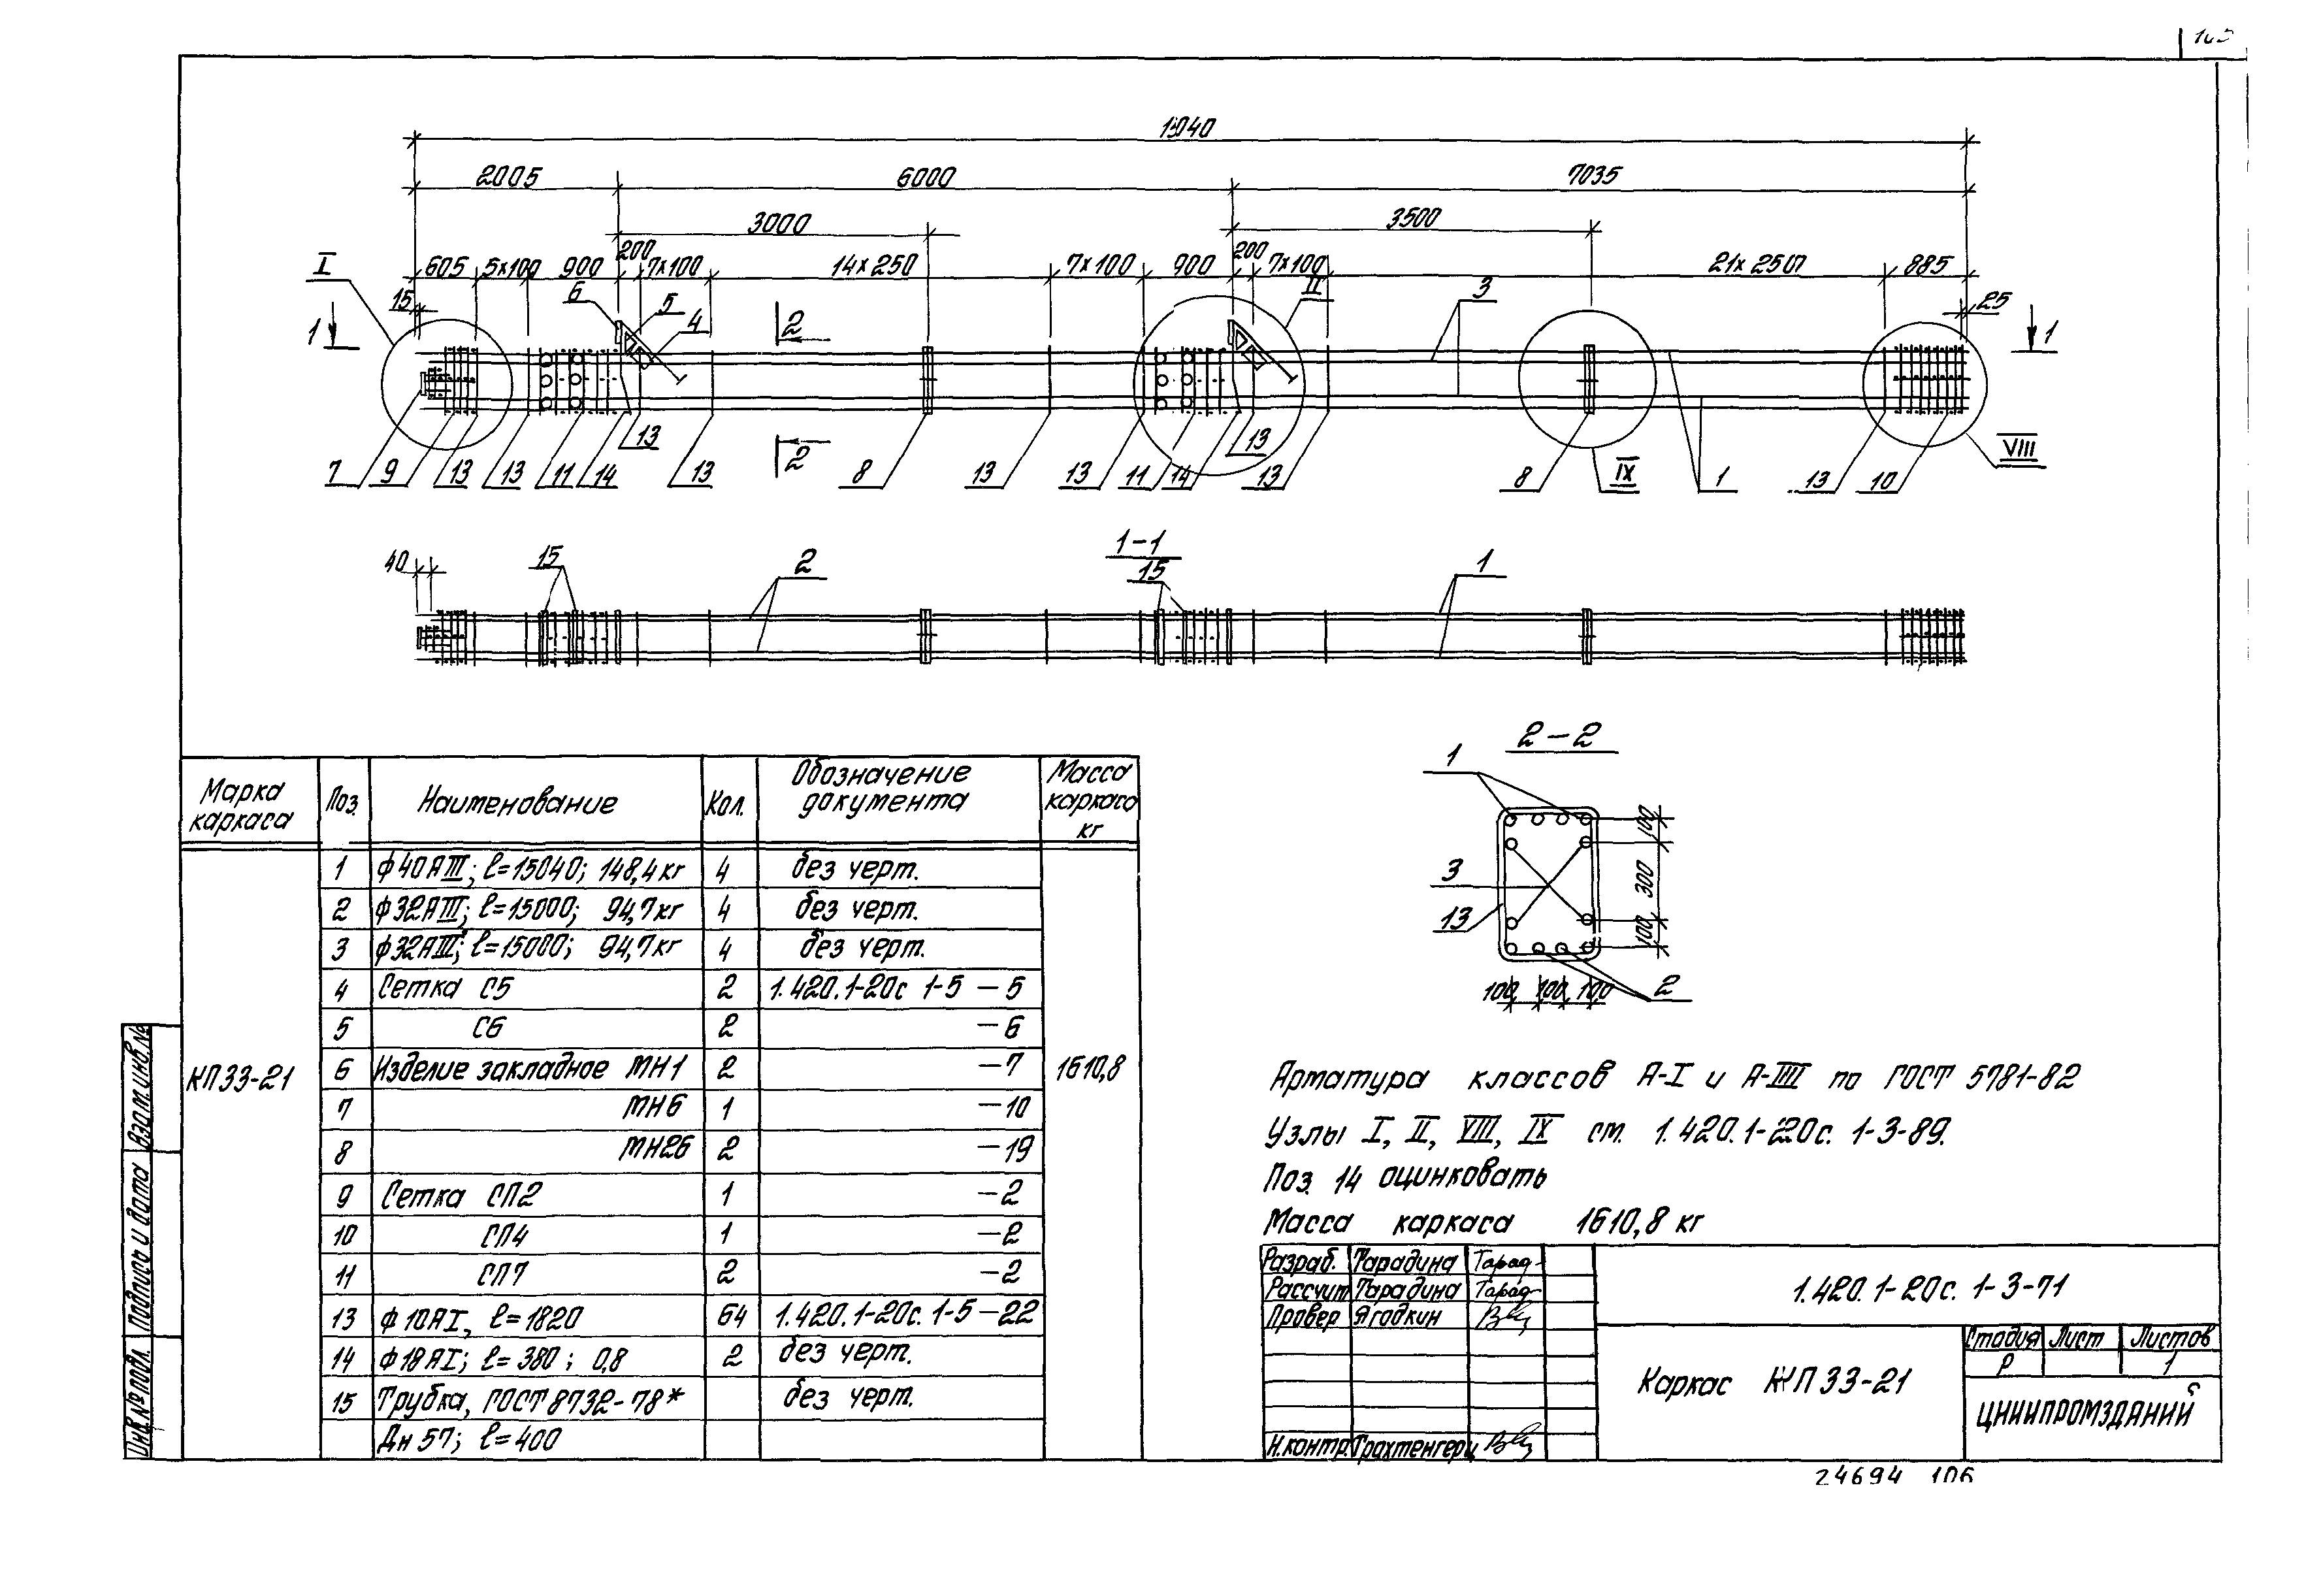 15040
2005 6000 7035
3000 3500
605 5×100 900 200 7×100 14×250 7×100 900 200 7×100 21×250 885
I 15 6 5 4 II 3 25
1 2 1
2
7 9 13 13 11 14 13 13 8 13 13 11 14 13 13 8 IX 1 13 10 VIII
1-1
40 15 2 15 1
2-2
1
100
3 300
13 100
100 100 100 2
Марка каркаса Поз. Наименование Кол. Обозначение документа Масса каркаса кг
КП33-21 1610,8
1 ф40АIII; ℓ=15040; 148,4кг 4 без черт.
2 ф32АIII; ℓ=15000; 94,7кг 4 без черт.
3 ф32АIII; ℓ=15000; 94,7кг 4 без черт.
4 Сетка С5 2 1.420.1-20с 1-5 -5
5 С6 2 -6
6 Изделие закладное МН1 2 -7
7 МН6 1 -10
8 МН26 2 -19
9 Сетка СП2 1 -2
10 СП4 1 -2
11 СП7 2 -2
13 ф10АI, ℓ=1820 64 1.420.1-20с. 1-5-22
14 ф18АI; ℓ=380; 0,8 2 без черт.
15 Трубка, ГОСТ8732-78* без черт.
Дн 57; ℓ=400
Арматура классов А-I и А-III по ГОСТ 5781-82
Узлы I, II, VIII, IX см. 1.420.1-20с. 1-3-89.
Поз. 14 оцинковать
Масса каркаса 1610,8 кг
Разраб. Тарадина Тарад
Рассчит Тарадина Тарад
Провер Ягодкин
Н.контр. Трахтенгерц
1.420.1-20с. 1-3-71
Каркас КП33-21
Стадия Лист Листов
Р 1
ЦНИИПРОМЗДАНИЙ
Инв.№ подл. Подпись и дата Взам.инв.№
24694 106